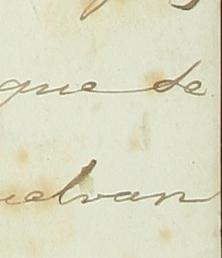 que se
uelvan